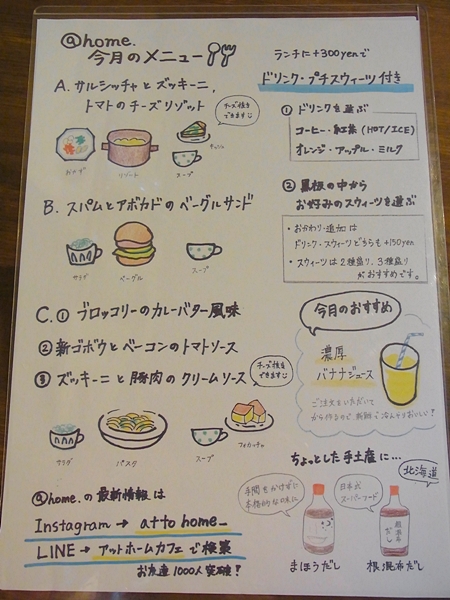 @home.
今月のメニュー
A. サルシッチャとズッキーニ,
トマトのチーズリゾット
チーズ抜き
できます
リゾット
スープ
B. スパムとアボカドのベーグルサンド
サラダ
ベーグル
スープ
C. ① ブロッコリーのカレーバター風味
② 新ゴボウとベーコンのトマトソース
③ ズッキーニと豚肉のクリームソース
チーズ抜き
できます
サラダ
パスタ
スープ
フォカッチャ
@home. の最新情報は
Instagram → atto home_
LINE → アットホームカフェで検索
お友達1000人突破!
ランチに+300yenで
ドリンク・プチスウィーツ付き
① ドリンクを選ぶ
コーヒー・紅茶 (HOT/ICE)
オレンジ・アップル・ミルク
② 黒板の中から
お好みのスウィーツを選ぶ
・おかわり・追加は
ドリンク・スウィーツどちらも+150yen
・スウィーツは2種盛り、3種盛り
がおすすめです。
今月のおすすめ
濃厚
バナナジュース
ご注文をいただいて
から作るので新鮮で冷んやりおいしい!
ちょっとした手土産に…
北海道
手間をかけずに
本格的な味に
日本式
スーパーフード
まほうだし
根昆布だし